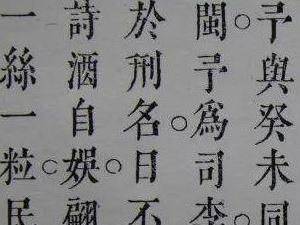 予與癸未同
閩○予爲司李○
於刑名○日不
詩酒自娛○翩
一絲一粒○民